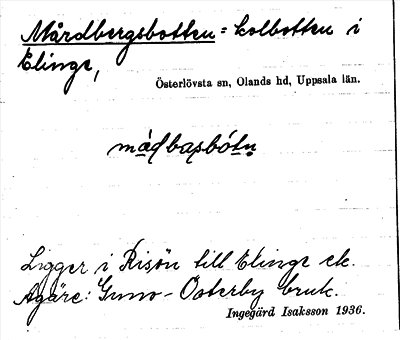 Mårdbergsbotten = kolbotten i
Elinge,
Österlövsta sn, Olands hd, Uppsala län.
Ligger i Risön till Elinge ek.
Ägare: Gimo-Österby bruk.
Ingegärd Isaksson 1936.